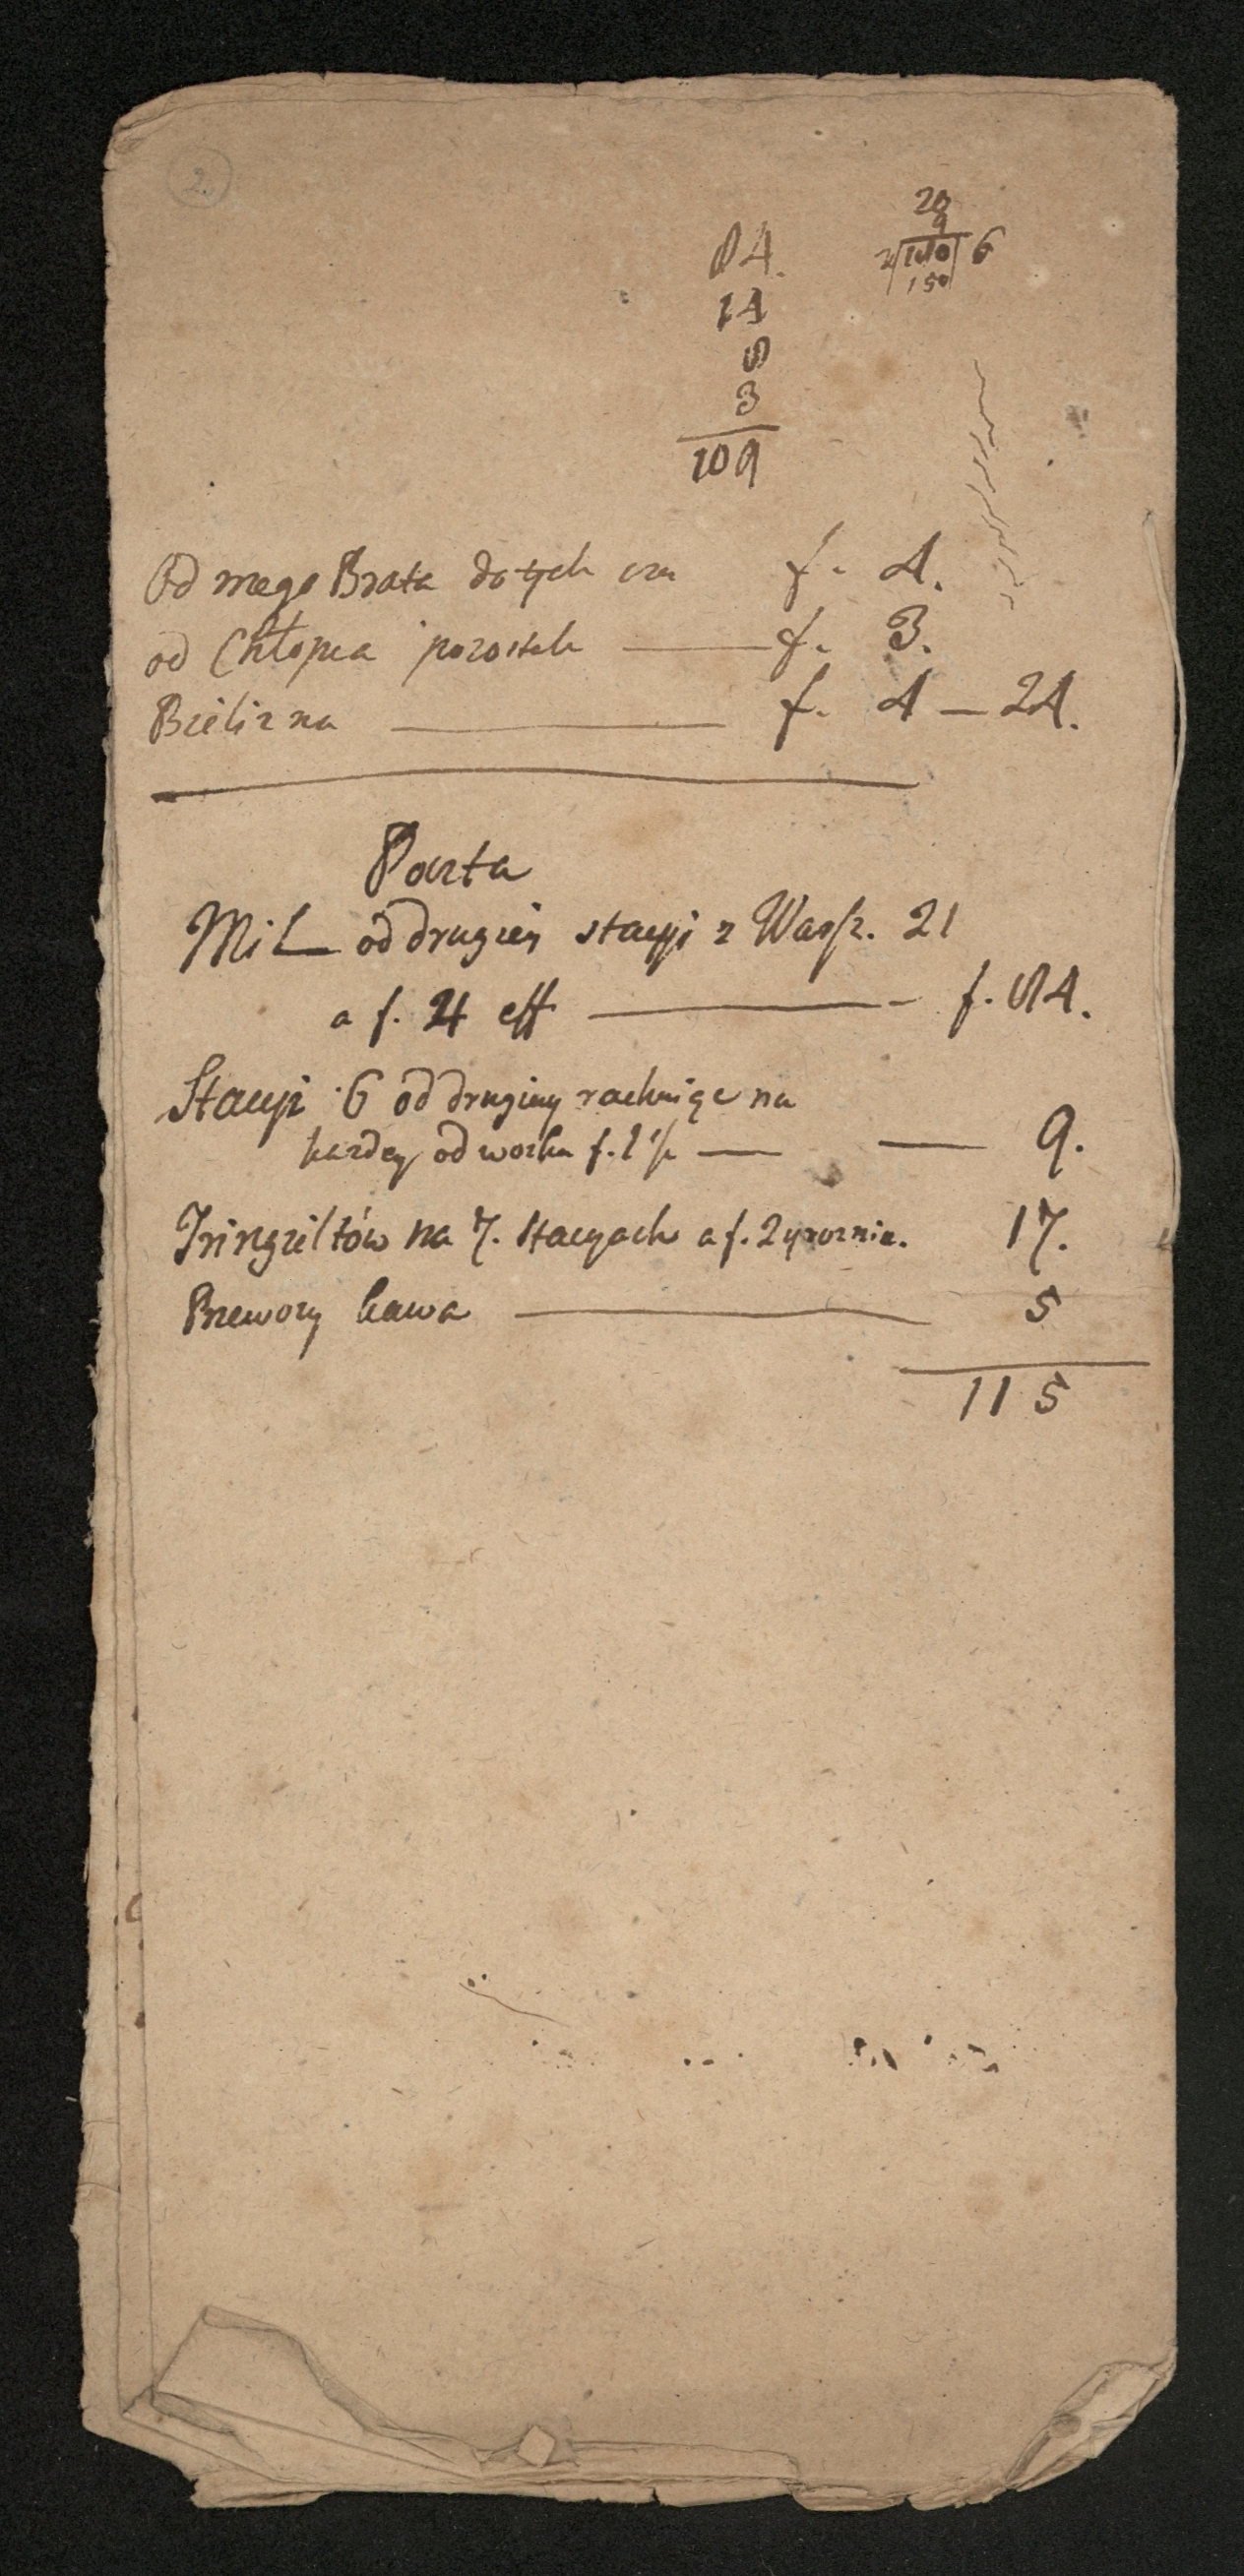 2.
84.
14
8
3
109
20
9
6
150
Od mego Brata do tych czas f. 4.
od Chłopca pozostałe — f. 3.
Bielizna — f. 4 — 24.
Poczta
Mil od drugiey stacyi z Warsz. 21
a f. 4 eff — f. 84.
Stacyi 6 od drugiey rachuiąc na
każdey od wozka f. 1 ½ — — 9.
Tringieltów na 7. Stacyach a f. 2 y rożnie. 17.
Przewozy kawa — 5
115